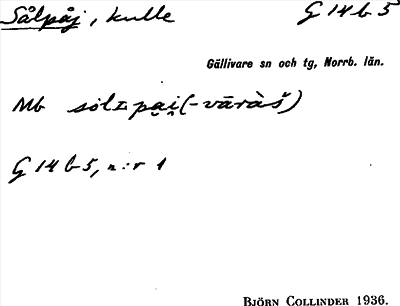 Sålpåj, kulle G 14 b 5
Gällivare sn och tg, Norrb. län.
Mb sólɪpa̯i̯(-vāràš)
G 14 b 5, n:r 1
BJÖRN COLLINDER 1936.